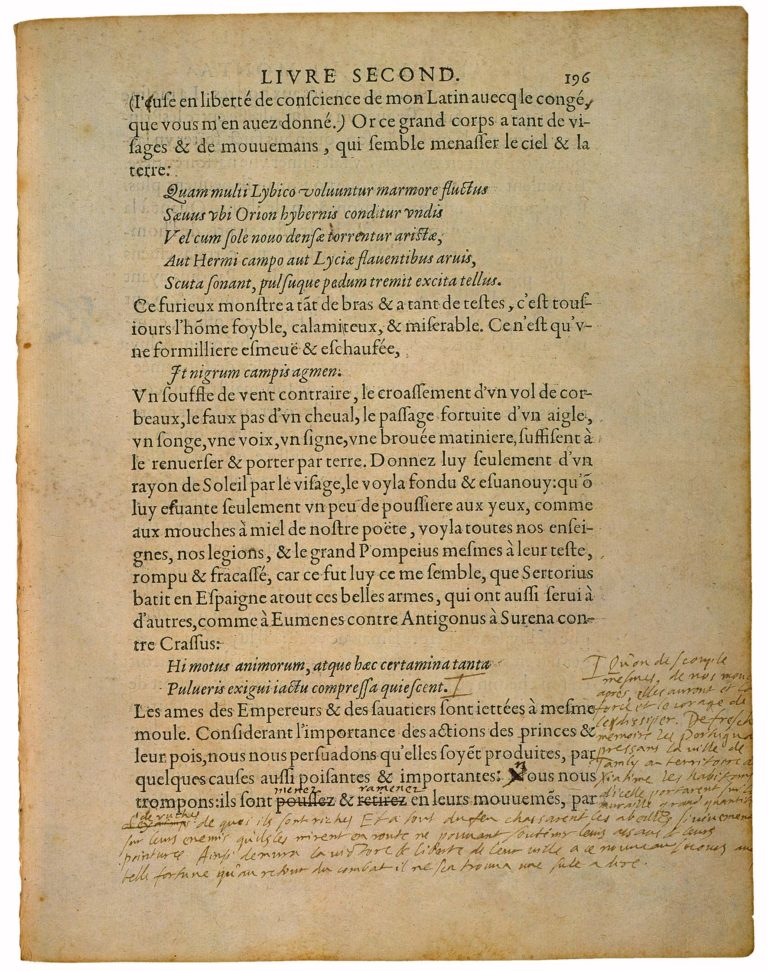 LIVRE SECOND. 196
(I'ẽuse en liberté de conscience de mon Latin auecq le congé,
que vous m'en auez donné.) Or ce grand corps a tant de vi-
sages & de mouuemans, qui semble menasser le ciel & la
terre:
Quam multi Lybico voluuntur marmore fluctus
Sæuus vbi Orion hybernis conditur vndis
Vel cum sole nouo densæ torrentur aristæ,
Aut Hermi campo aut Lyciæ flauentibus aruis,
Scuta sonant, pulsuque pedum tremit excita tellus.
Ce furieux monstre a tãt de bras & a tant de testes, c'est tous-
iours l'hõme foyble, calamiteux, & miserable. Ce n'est qu'v-
ne formilliere esmeuë & eschaufée,
It nigrum campis agmen:
Vn souffle de vent contraire, le croassement d'vn vol de cor-
beaux, le faux pas d'vn cheual, le passage fortuite d'vn aigle,
vn songe, vne voix, vn signe, vne brouée matiniere, suffisent à
le renuerser & porter par terre. Donnez luy seulement d'vn
rayon de Soleil par le visage, le voyla fondu & esuanouy: qu'õ
luy esuante seulement vn peu de poussiere aux yeux, comme
aux mouches à miel de nostre poëte, voyla toutes nos ensei-
gnes, nos legions, & le grand Pompeius mesmes à leur teste,
rompu & fracassé, car ce fut luy ce me semble, que Sertorius
batit en Espaigne atout ces belles armes, qui ont aussi serui à
d'autres, comme à Eumenes contre Antigonus à Surena con-
tre Crassus:
Hi motus animorum, atque hæc certamina tanta
Pulueris exigui iactu compressa quiescent.
Les ames des Empereurs & des sauatiers sont iettées à mesme
moule. Considerant l'importance des actions des princes &
leur pois, nous nous persuadons qu'elles soyẽt produites, par
quelques causes aussi poisantes & importantes: Nous nous
menez ramenez
trompons: ils sont poussez & retirez en leurs mouuemẽs, par
Qu'on descouple
mesmes, de nos mouches
apres, elles auront et la
force et le corage de
le dissiper. De fresche
memoire les Portugais
pressans la uille de
Tamly au territoire de
Xiatime les habitans
d'icelle portarent sur la
muraille grand quantite
de ruches
de quoi ils sont riches Et a tout du feu chassarent les abeilles si uiuemant
sur leurs enemis qu'ils les mirent en route ne pouuant soutenir leurs assaus & leurs
pointures Ainsi demura la uictoire & liberte de leur uille a ce nouueau secours aueq
telle fortune qu'au retour du combat il ne s'en trouua une sule a dire.